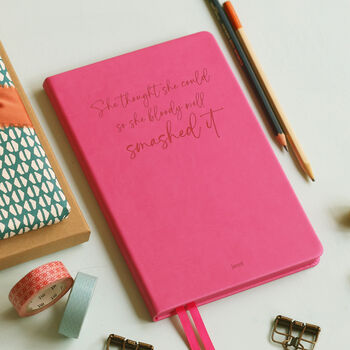 She thought she could
so she bloody well
smashed it